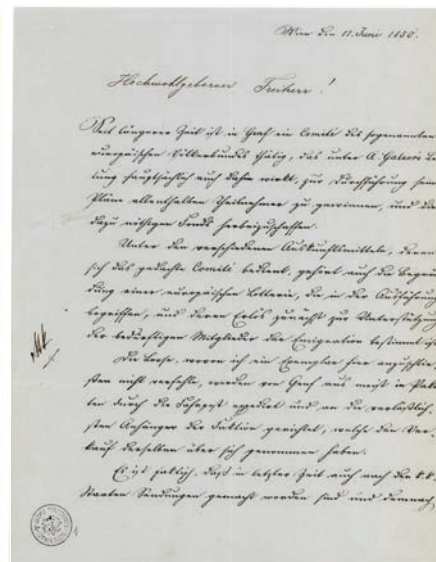 Wien den 11. Juni 1850.
Hochwohlgeborner Freiherr!
Seit längerer Zeit ist in Genf ein Comité des sogenannten
europäischen Völkerbundes thätig, das unter A. Galeers Lei
tung hauptsächlich auch dahin wirkt, zur Durchführung seiner
Pläne allenthalben Theilnehmer zu gewinnen, und die
dazu nöthigen Fonds herbeizuschaffen.
Unter den verschiedenen Auskunftsmitteln, deren
sich das gedachte Comité bedient, gehört auch die Begrün
dung einer europäischen Lotterie, die in der Ausführung
begriffen, und deren Erlös zunächst zur Unterstützung
der bedürftigen Mitglieder der Emigration bestimmt ist.
Die Loose, wovon ich ein Exemplar hier anzuschlie,
ßen nicht verfehle, werden von Genf aus meist in Pake
ten durch die Fahrpost expedirt und an die verläßlich,
sten Anhänger der Fuktion gerichtet, welche den Ver,
kauf derselben über sich genommen haben.
Es ist faktisch, daß in letzter Zeit auch nach den k. k.
Staaten Sendungen gemacht worden sind und demnach